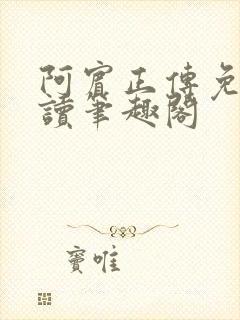 阿賓正傳免
讀筆趣閣
竇唯